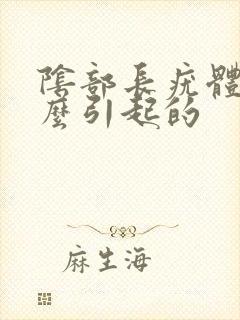 陰部長疣體
麼引起的
麻生海